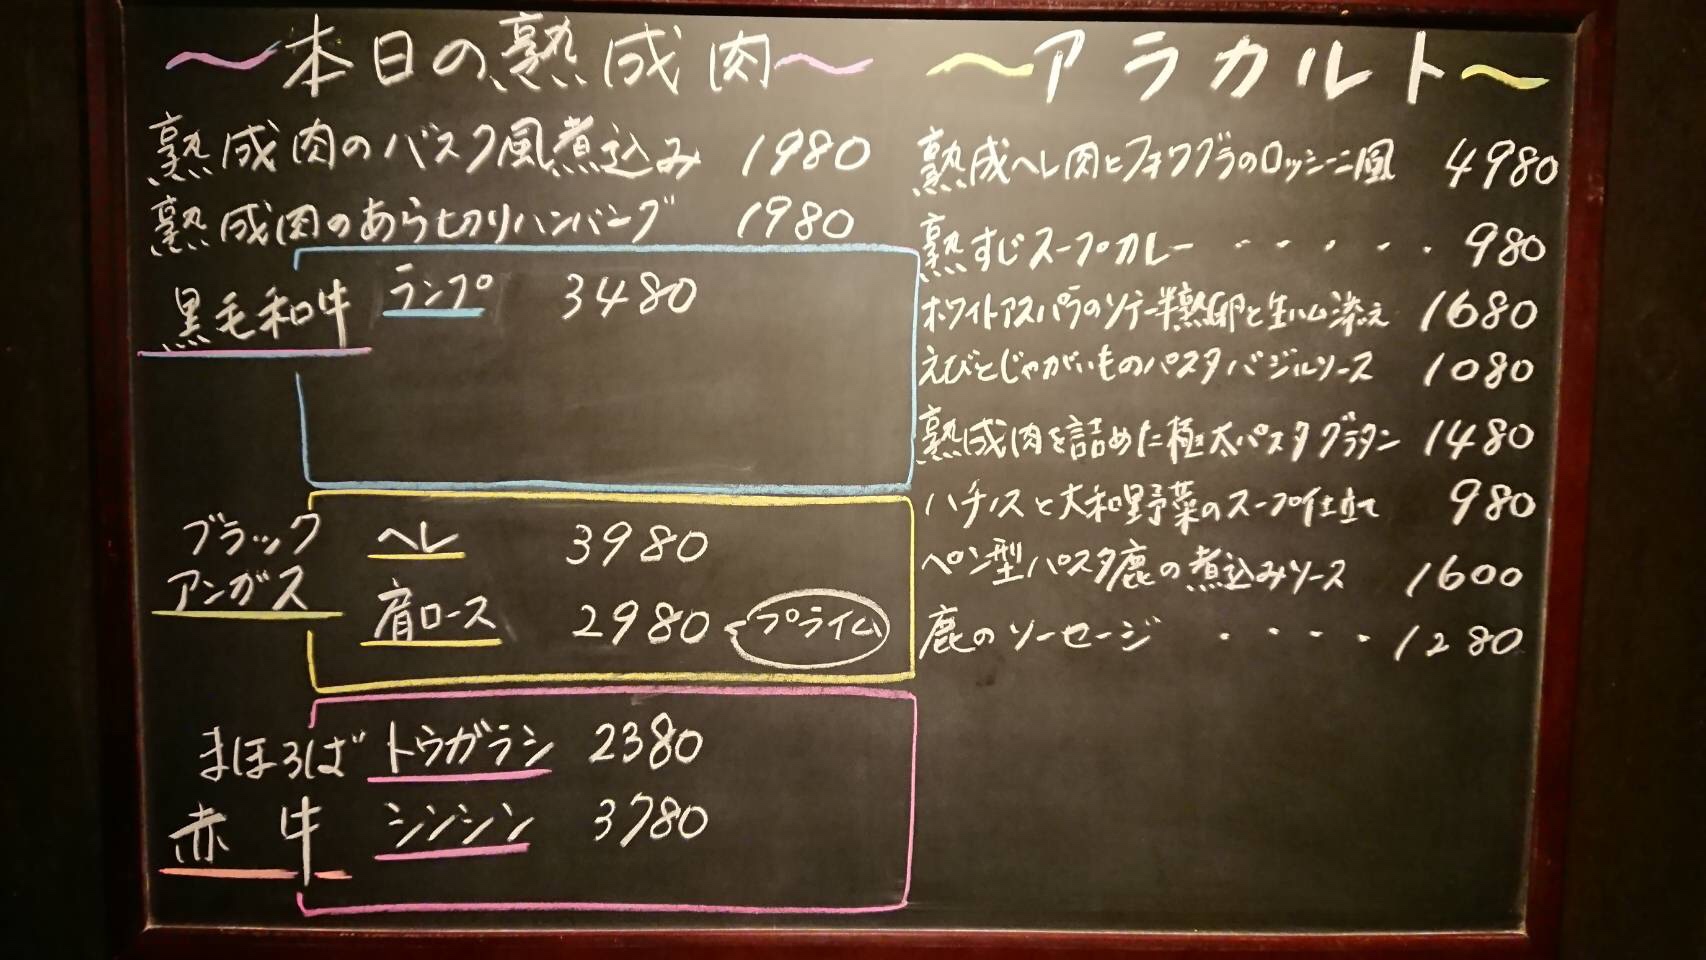 〜本日の熟成肉〜
熟成肉のバスク風煮込み 1980
熟成肉のあら切りハンバーグ 1980
黒毛和牛 ランプ 3480
ブラックアンガス
ヘレ 3980
肩ロース 2980 プライム
まほろば
赤牛
トウガラシ 2380
シンシン 3780
〜アラカルト〜
熟成ヘレ肉とフォワグラのロッシーニ風 4980
熟すじスープカレー・・・・・・980
ホワイトアスパラのソテー半熟卵と生ハム添え 1680
えびとじゃがいものパスタバジルソース 1080
熟成肉を詰めた極太パスタグラタン 1480
ハチノスと大和野菜のスープ仕立て 980
ペン型パスタ鹿の煮込みソース 1600
鹿のソーセージ・・・・1280